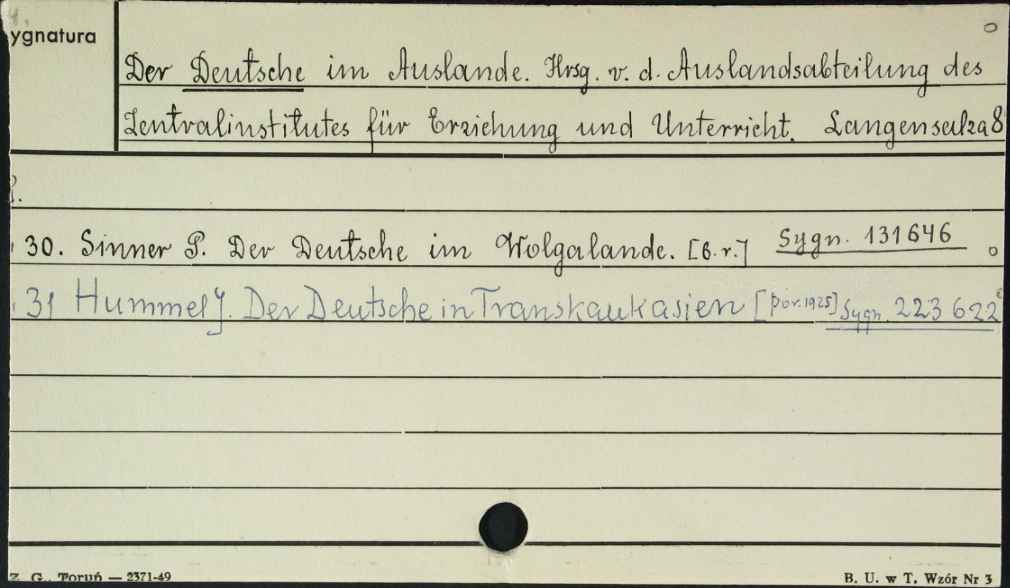 ygnatura
Der Deutsche im Auslande. Hrsg. v. d. Auslandsabteilung des
Zentralinstitutes für Erziehung und Unterricht. Langensalza 8
30. Sinner P. Der Deutsche im Wolgalande. [B.r.] Sygn. 131646
31 Hummel J. Der Deutsche in Transkaukasien [por. 1925] Sygn. 223622
Z. G. Toruń — 2371-49
B. U. w T. Wzór Nr 3